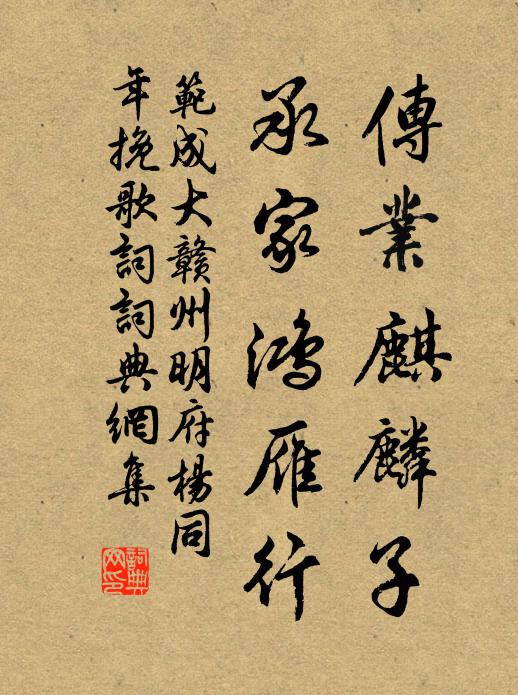 傳業麒麟子
承家鴻雁行
範成大贛州明府楊同
年挽歌詞詞典網集
詞典
网印